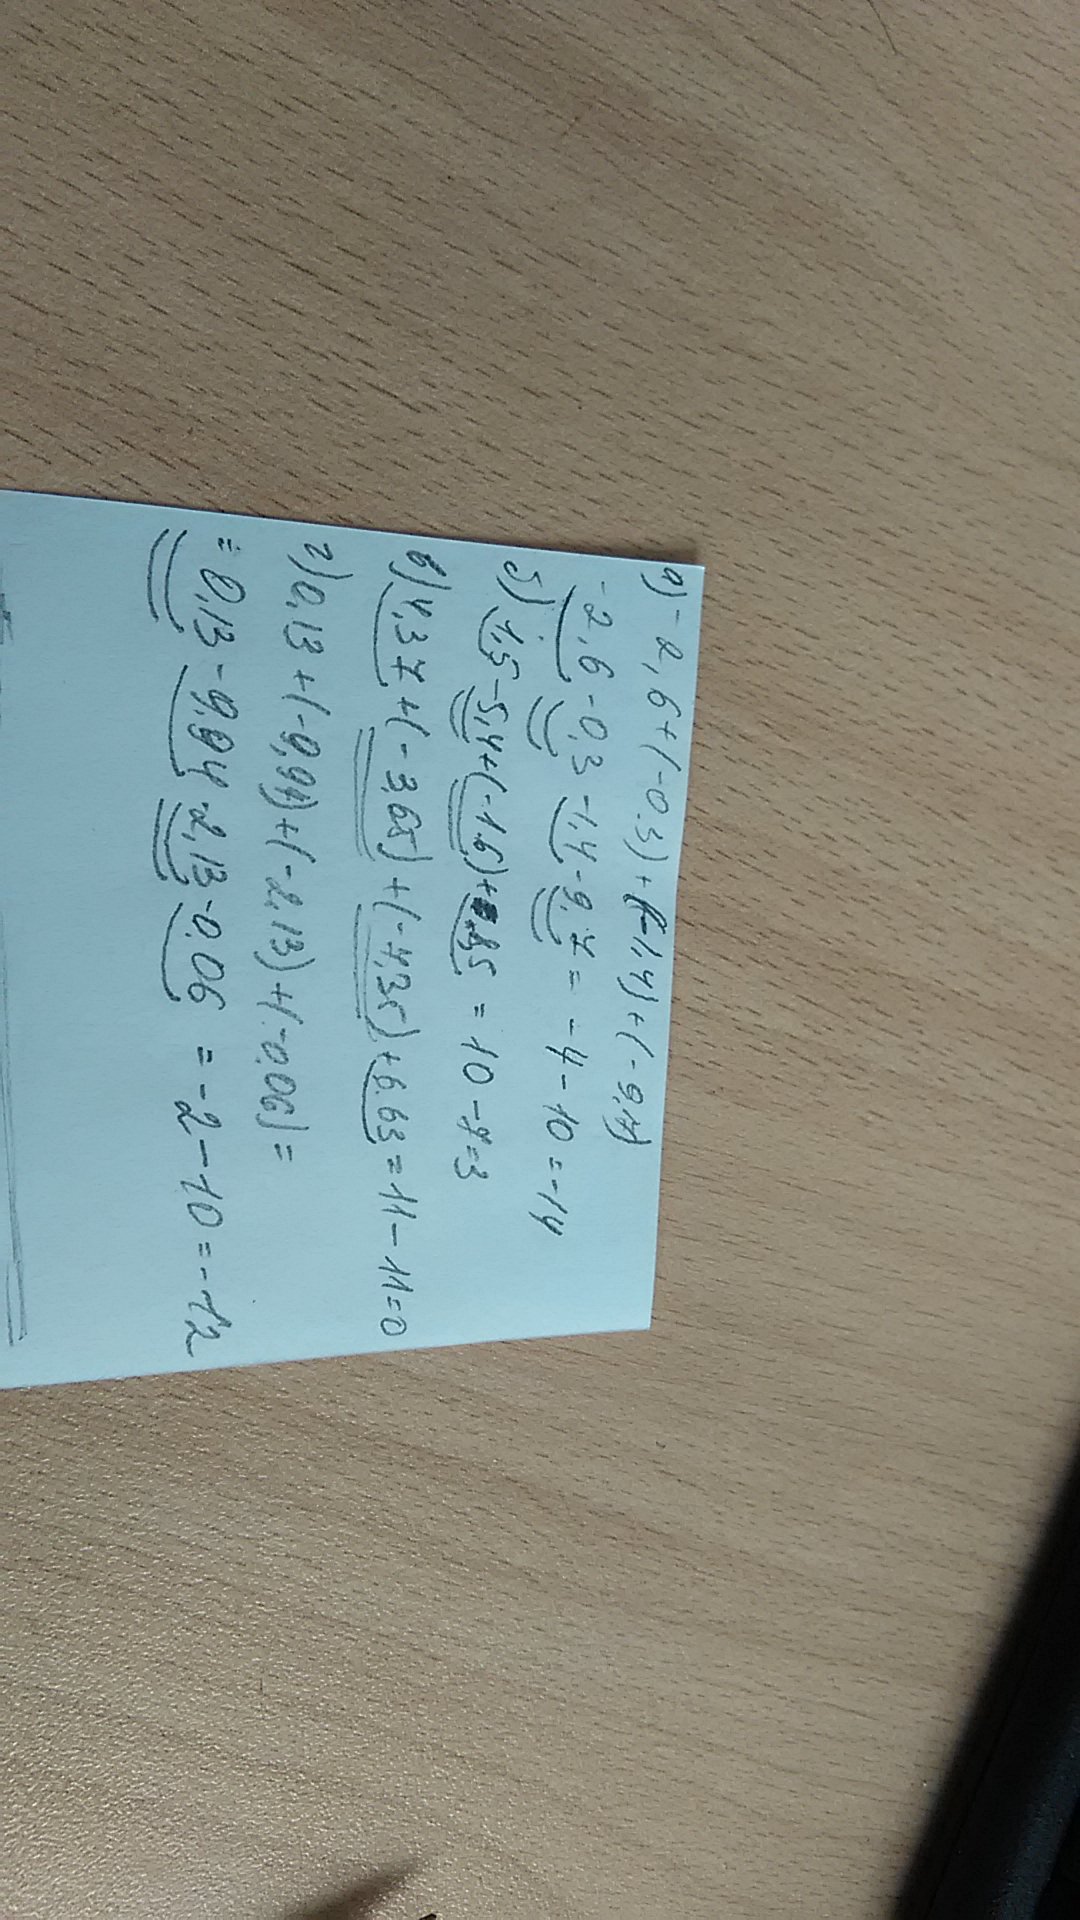 а) -2,6+(-0,3)+(-1,4)+(-9,7)
-2,6-0,3-1,4-9,7=-4-10=-14
б) 1,5-5,4+(-1,6)+8,5=10-7=3
в) 4,37+(-3,65)+(-7,35)+6,63=11-11=0
г) 0,13+(-9,94)+(-2,13)+(-0,06)=
=0,13-9,94-2,13-0,06=-2-10=-12